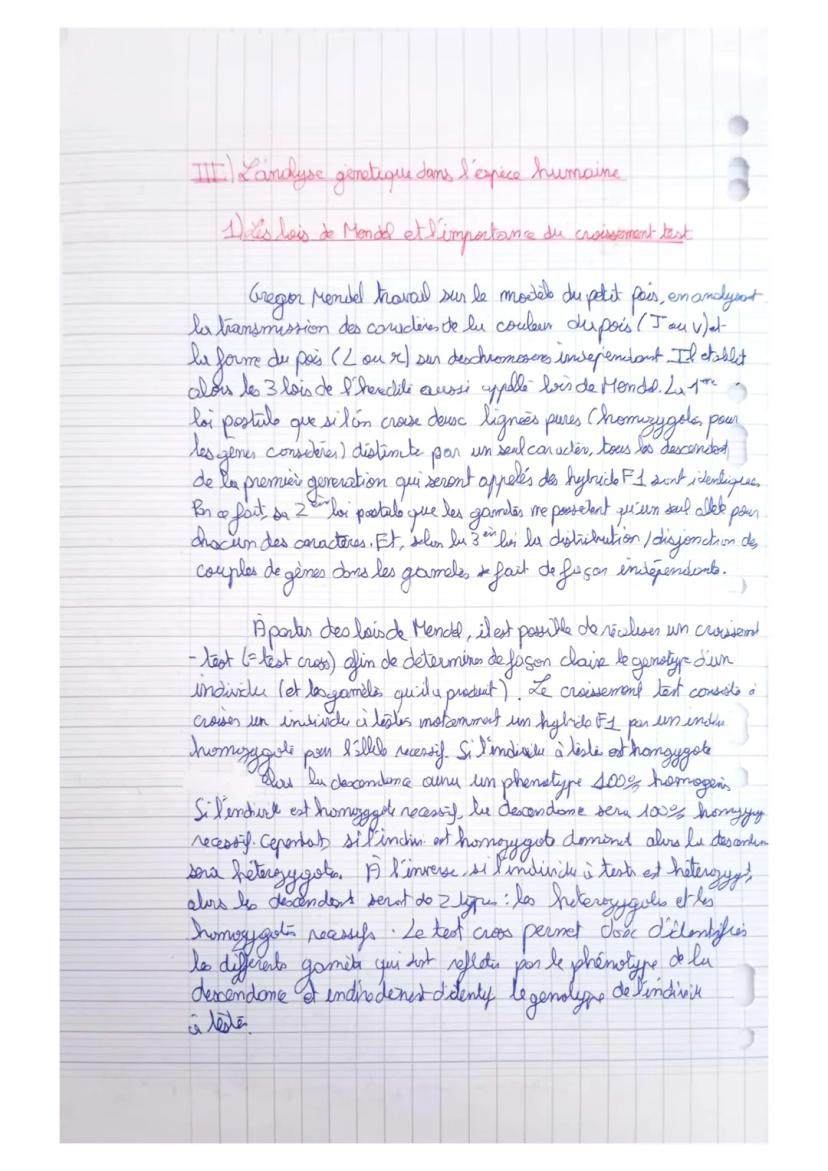 III) L'analyse génetique dans l'espèce humaine
1) Les lois de Mendel et l'importance du croissement test
Gregor Mendel travail sur le modèle du petit pois, en analysant
la transmission des caractères de la couleur du pois (J ou v) et
la forme du pois (L ou r) sur des chromosomes independant. Il etablit
alors les 3 lois de l'heredité aussi appellé lois de Mendel. La 1ère
loi postule que si l'on croise deux lignées pures (homozygotes pour
les gènes considères) distincte par un seul caractère, tous les descendant
de la première generation qui seront appelés des hybride F1 sont identiques.
En ce fait, sa 2ème loi postule que les gamètes ne possèdent qu'un seul allèle pour
chacun des caractères. Et, selon la 3ème loi la distribution / disjonction des
couples de gènes dans les gamètes se fait de façon indépendante.
À partir des lois de Mendel, il est possible de réaliser un croissement
- test (= test cross) afin de déterminer de façon claire le genotype d'un
individu (et les gamètes qu'il a produit). Le croissement test consiste à
croiser un individu à tester notamment un hybride F1 par un individu
homozygote pour l'allèle recessif. Si l'individu à tester est homozygote
alors la descendance aura un phenotype 100% homogène,
Si l'individu est homozygote recessif, la descendance sera 100% homozygote
recessif. Cependant, si l'indivi est homozygote dominant alors la descendance
sera hétérozygote. À l'inverse, si l'individu à tester est hétérozygote,
alors les descendant seront de 2 types : les heterozygotes et les
homozygotes recessifs. Le test cross permet donc d'identifier
les différents gamètes qui sont refletés par le phénotype de la
descendance et indirectement d'identifier le genotype de l'individu
à tester.